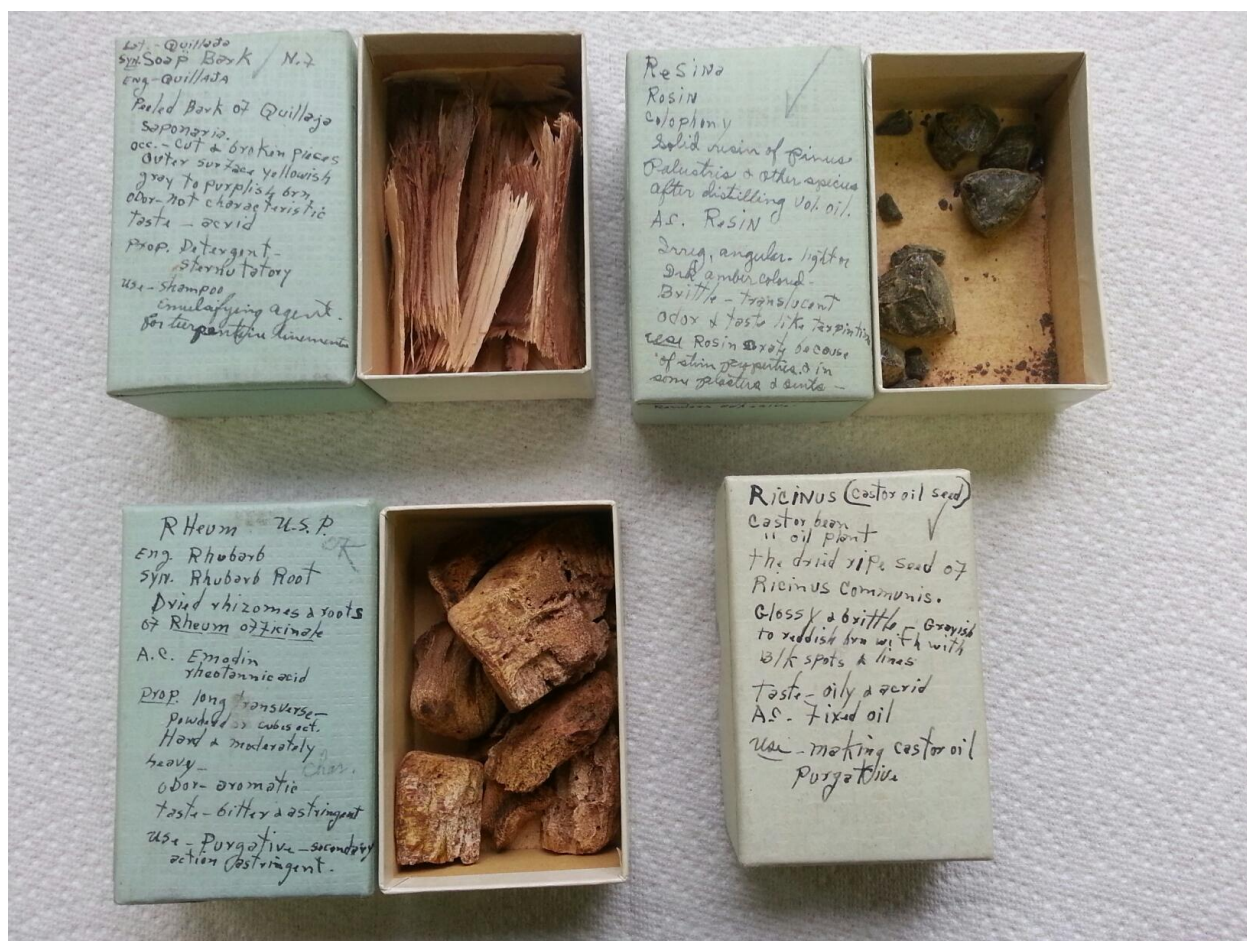 Lat. - Quillaja
Syn. Soap Bark N.7
Eng - Quillaja
Peeled Bark of Quillaja
Saponaria.
occ. - Cut & broken pieces
outer surface yellowish
gray to purplish brn
odor - not characteristic
taste - acrid
Prop. Detergent -
sternutatory
use - shampoo
emulsifying agent.
for turpentine linements
Resina
Rosin
Colophony
Solid resin of pinus
Palustris & other species
after distilling vol. oil.
A.C. Resin
Irreg, angular - light or
Drk amber colored -
Brittle - translucent
odor & taste like terpintine
use Rosin because
of stim properties & in
some plasters & oints -
RHeum U.S.P.
OK
Eng Rhubarb
Syn. Rhubarb Root
Dried rhizomes & roots
of Rheum officinale
A.C. Emodin
rheotannic acid
Prop. long transverse -
Powdered or cubes ect.
Hard & moderately
heavy -
Char.
odor - aromatic
taste - bitter & astringent
Use - Purgative - secondary
action astringent.
Ricinus (castor oil seed)
Castor bean
" oil plant
the dried ripe seed of
Ricinus Communis.
Glossy & brittle - Grayish
to reddish brn with with
Blk spots & lines
taste - oily & acrid
A.C. Fixed oil
Use - making castor oil
Purgative